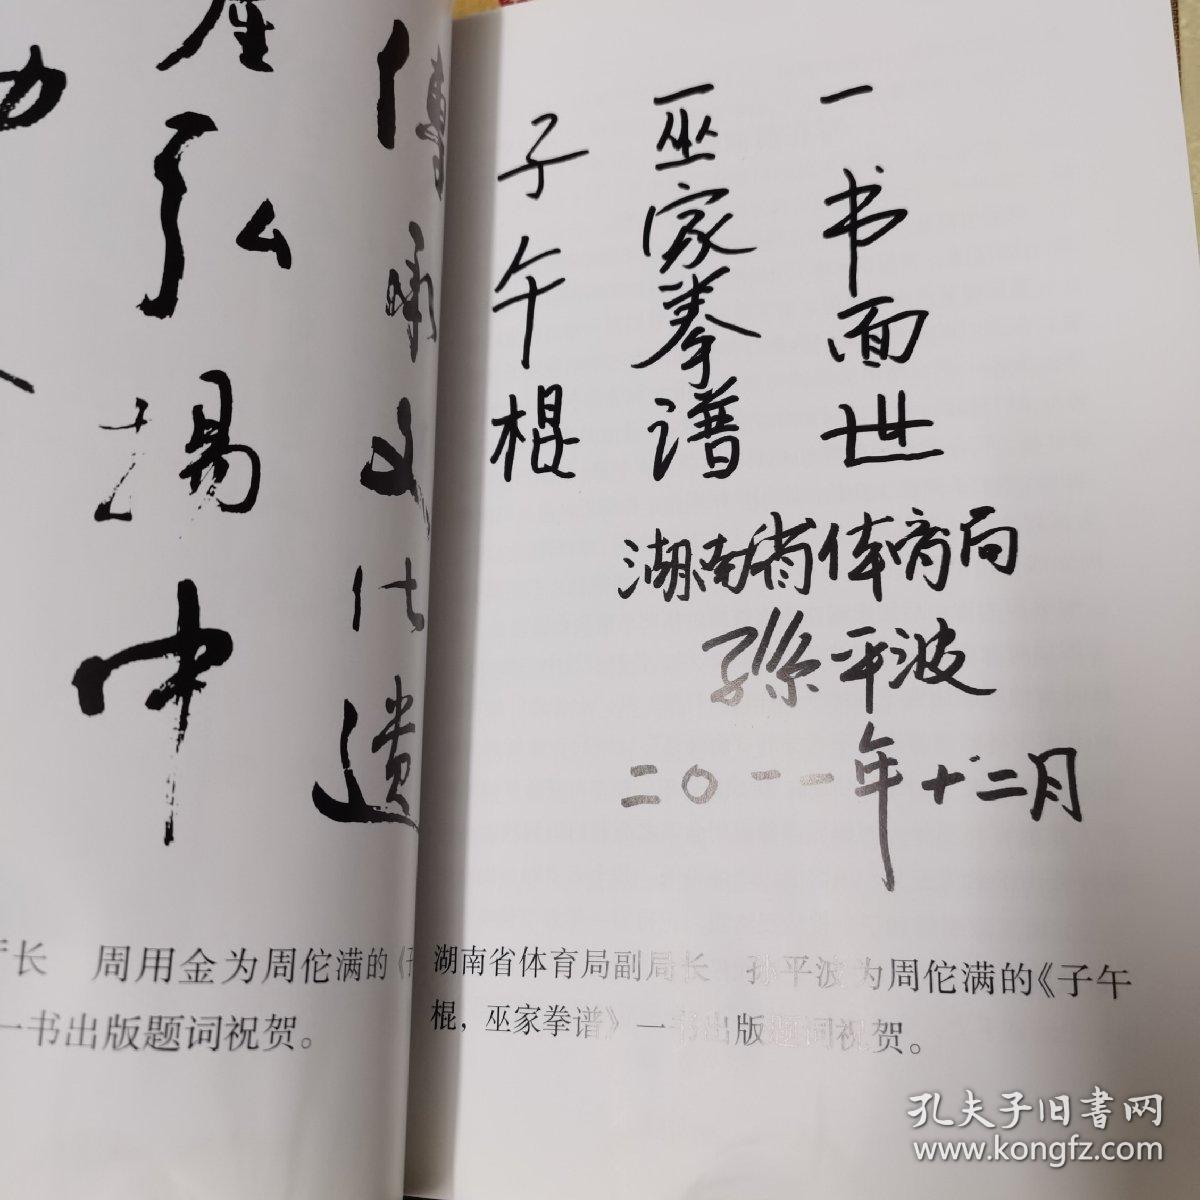 傳承文化遗
產弘揚中
长 周用金为周佗满的《
一书出版题词祝贺。
子午棍
巫家拳谱
一书面世
湖南省体育局
孫平波
二〇一一年十二月
湖南省体育局副局长 孙平波为周佗满的《子午
棍，巫家拳谱》一书出版题词祝贺。
孔夫子旧书网
www.kongfz.com